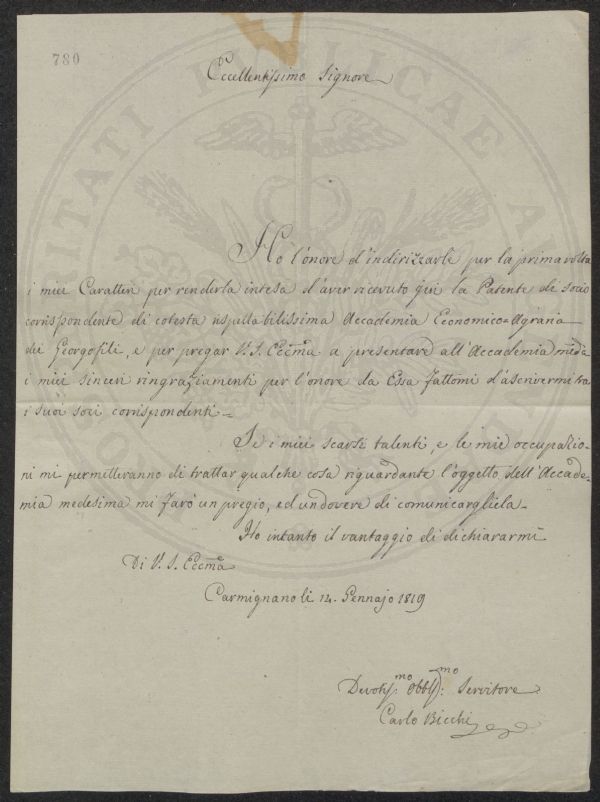 780
Eccellentissimo Signore
Ho l'onore d'indirizzarle per la prima volta
i miei Caratteri per renderla intesa d'aver ricevuto jeri la Patente di socio
corrispondente di cotesta rispettabilissima Accademia Economico-Agraria
dei Georgofili, e per pregar V. S. Eccma a presentare all'Accademia meda
i miei sinceri ringraziamenti per l'onore da Essa fattomi d'ascrivermi tra
i suoi soci corrispondenti_
Se i miei scarsi talenti, e le mie occupazio-
ni mi permetteranno di trattar qualche cosa riguardante l'oggetto dell'Accade-
mia medesima mi farò un pregio, ed un dovere di comunicargliela_
Ho intanto il vantaggio di dichiararmi
Di V. S. Eccma
Carmignano li 14. Gennajo 1819
Devotismo Obblmo: Servitore
Carlo Bicchi